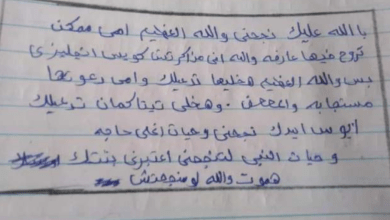 باالله عليك نجحنى والله العظيم امى ممكن
تروح فيها عارفه والله انى مذاكرتش كويس انجليزى
بس والله العظيم هخليها تدعيلك وامى دعوتها
مستجابه والله . وهخلى تيتا كمان تدعيلك
ابوس ايدك نجحنى وحيات اغلى حاجه
وحيات النبى لتنجحنى اعتبرنى بنتك
هموت والله لو منجحتش